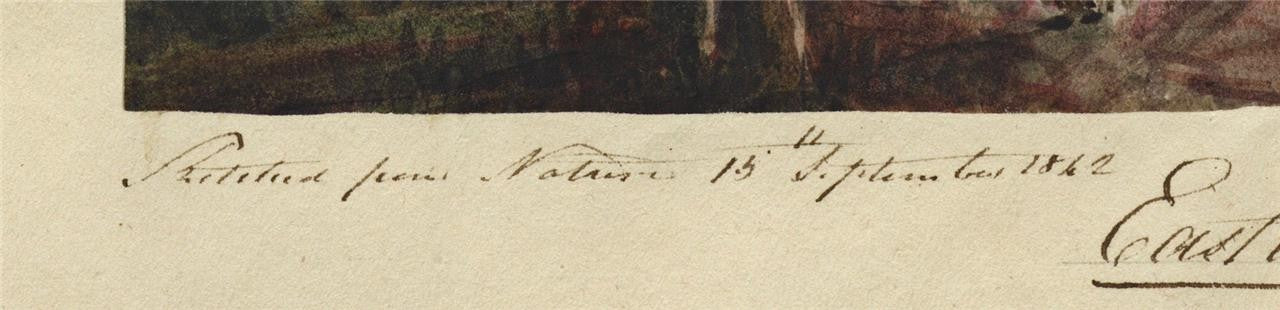 Sketched from Nature 15th September 1862
East